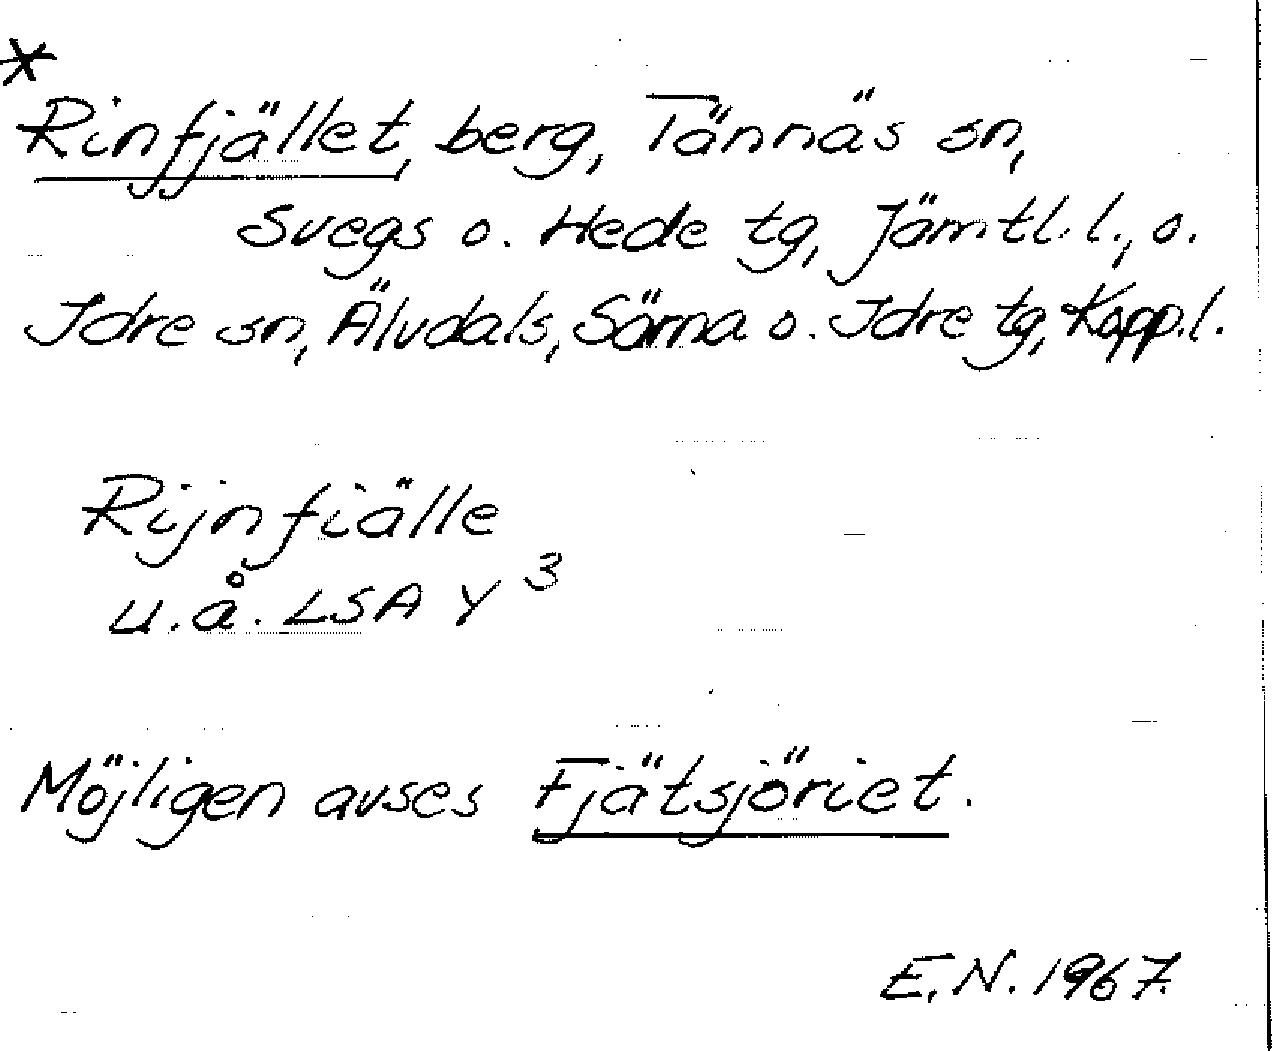 *
Rinfjället, berg, Tännäs sn,
Svegs o. Hede tg, Jämtl. l., o.
Idre sn, Älvdals, Särna o. Idre tg, Kopp. l.
Rijnfiälle
u.å. LSA Y 3
Möjligen avses Fjätsjöriet.
E.N. 1967.